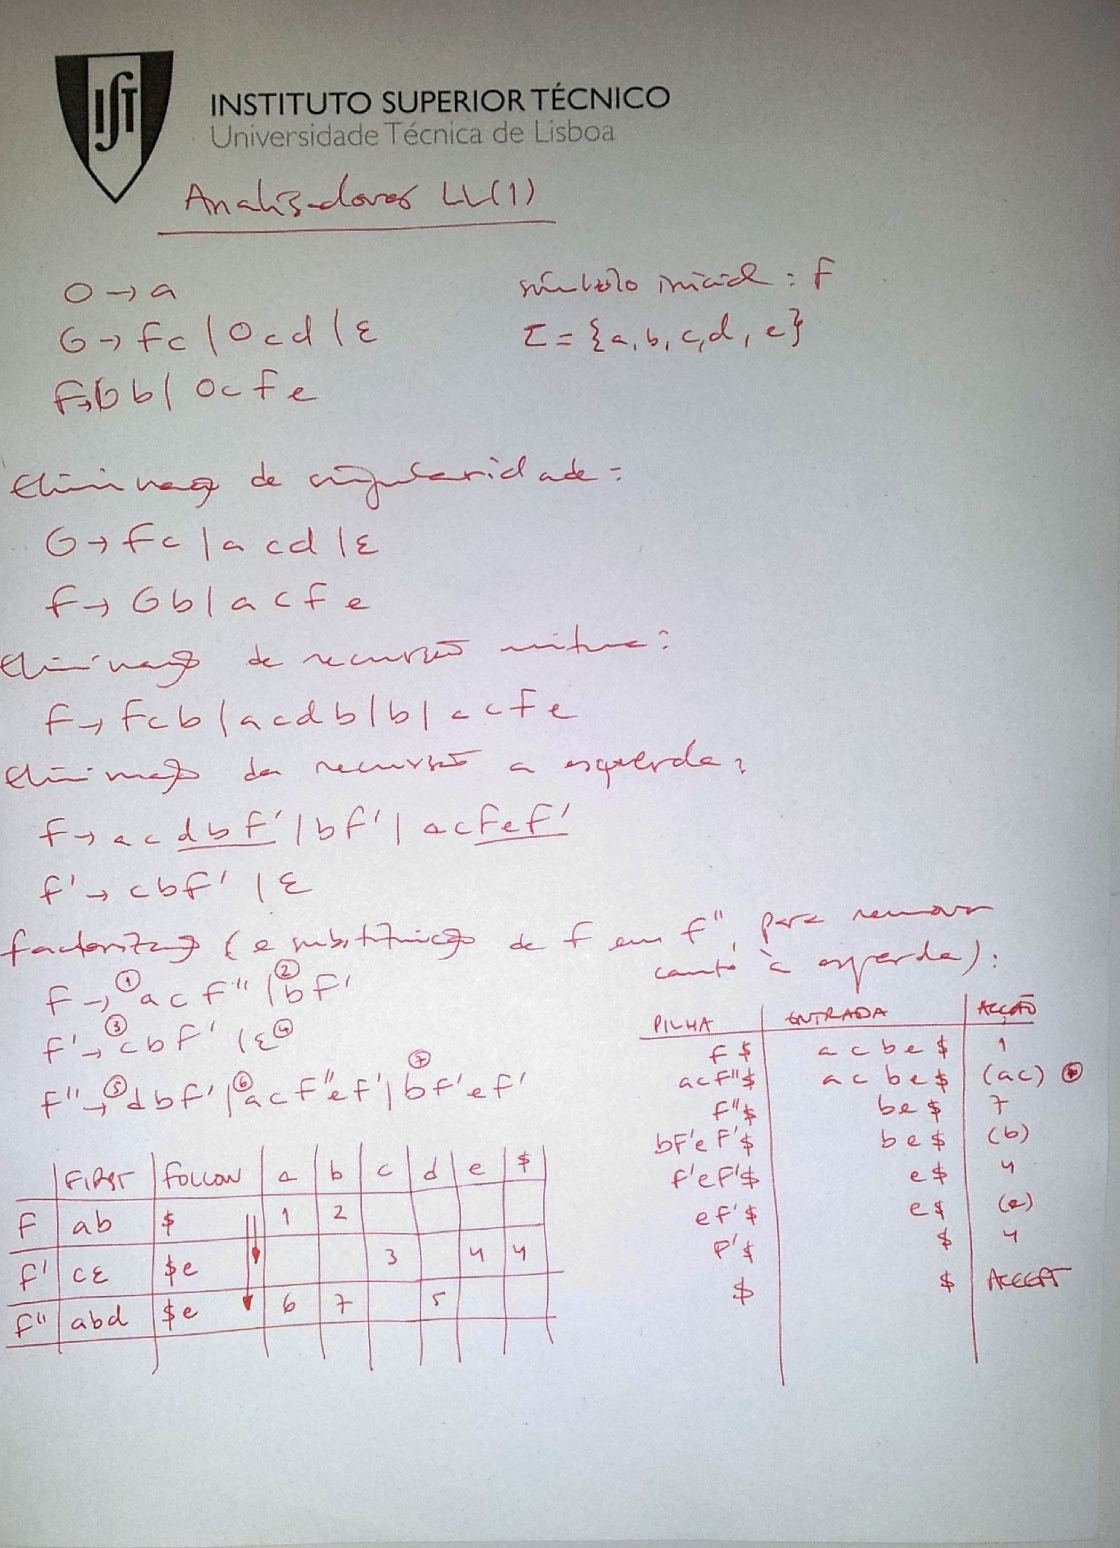 IST
INSTITUTO SUPERIOR TÉCNICO
Universidade Técnica de Lisboa
Analisadores LL(1)
O → a
símbolo inicial : F
G → Fc | Ocd | ε
Σ = {a, b, c, d, e}
F → Gb | OcFe
Eliminação de singularidade:
G → Fc | acd | ε
F → Gb | acFe
Eliminação de recursão mútua:
F → Fcb | acdb | b | acFe
Eliminação da recursão à esquerda:
F → acdbF' | bF' | acFeF'
F' → cbF' | ε
Factorização (e substituição de F em F'', para remover
canto à esquerda):
F → ① acF'' | ② bF'
F' → ③ cbF' | ε ④
F'' → ⑤ dbF' | ⑥ acF''eF' | ⑦ bF'eF'
PILHA ENTRADA ACÇÃO
F$ acbe$ 1
acF''$ acbe$ (ac)
F''$ be$ 7
bF'eF'$ be$ (b)
F'eF'$ e$ 4
eF'$ e$ (e)
F'$ $ 4
$ $ ACCEPT
FIRST FOLLOW a b c d e $
F ab $ 1 2
F' cε $e 3 4 4
F'' abd $e 6 7 5